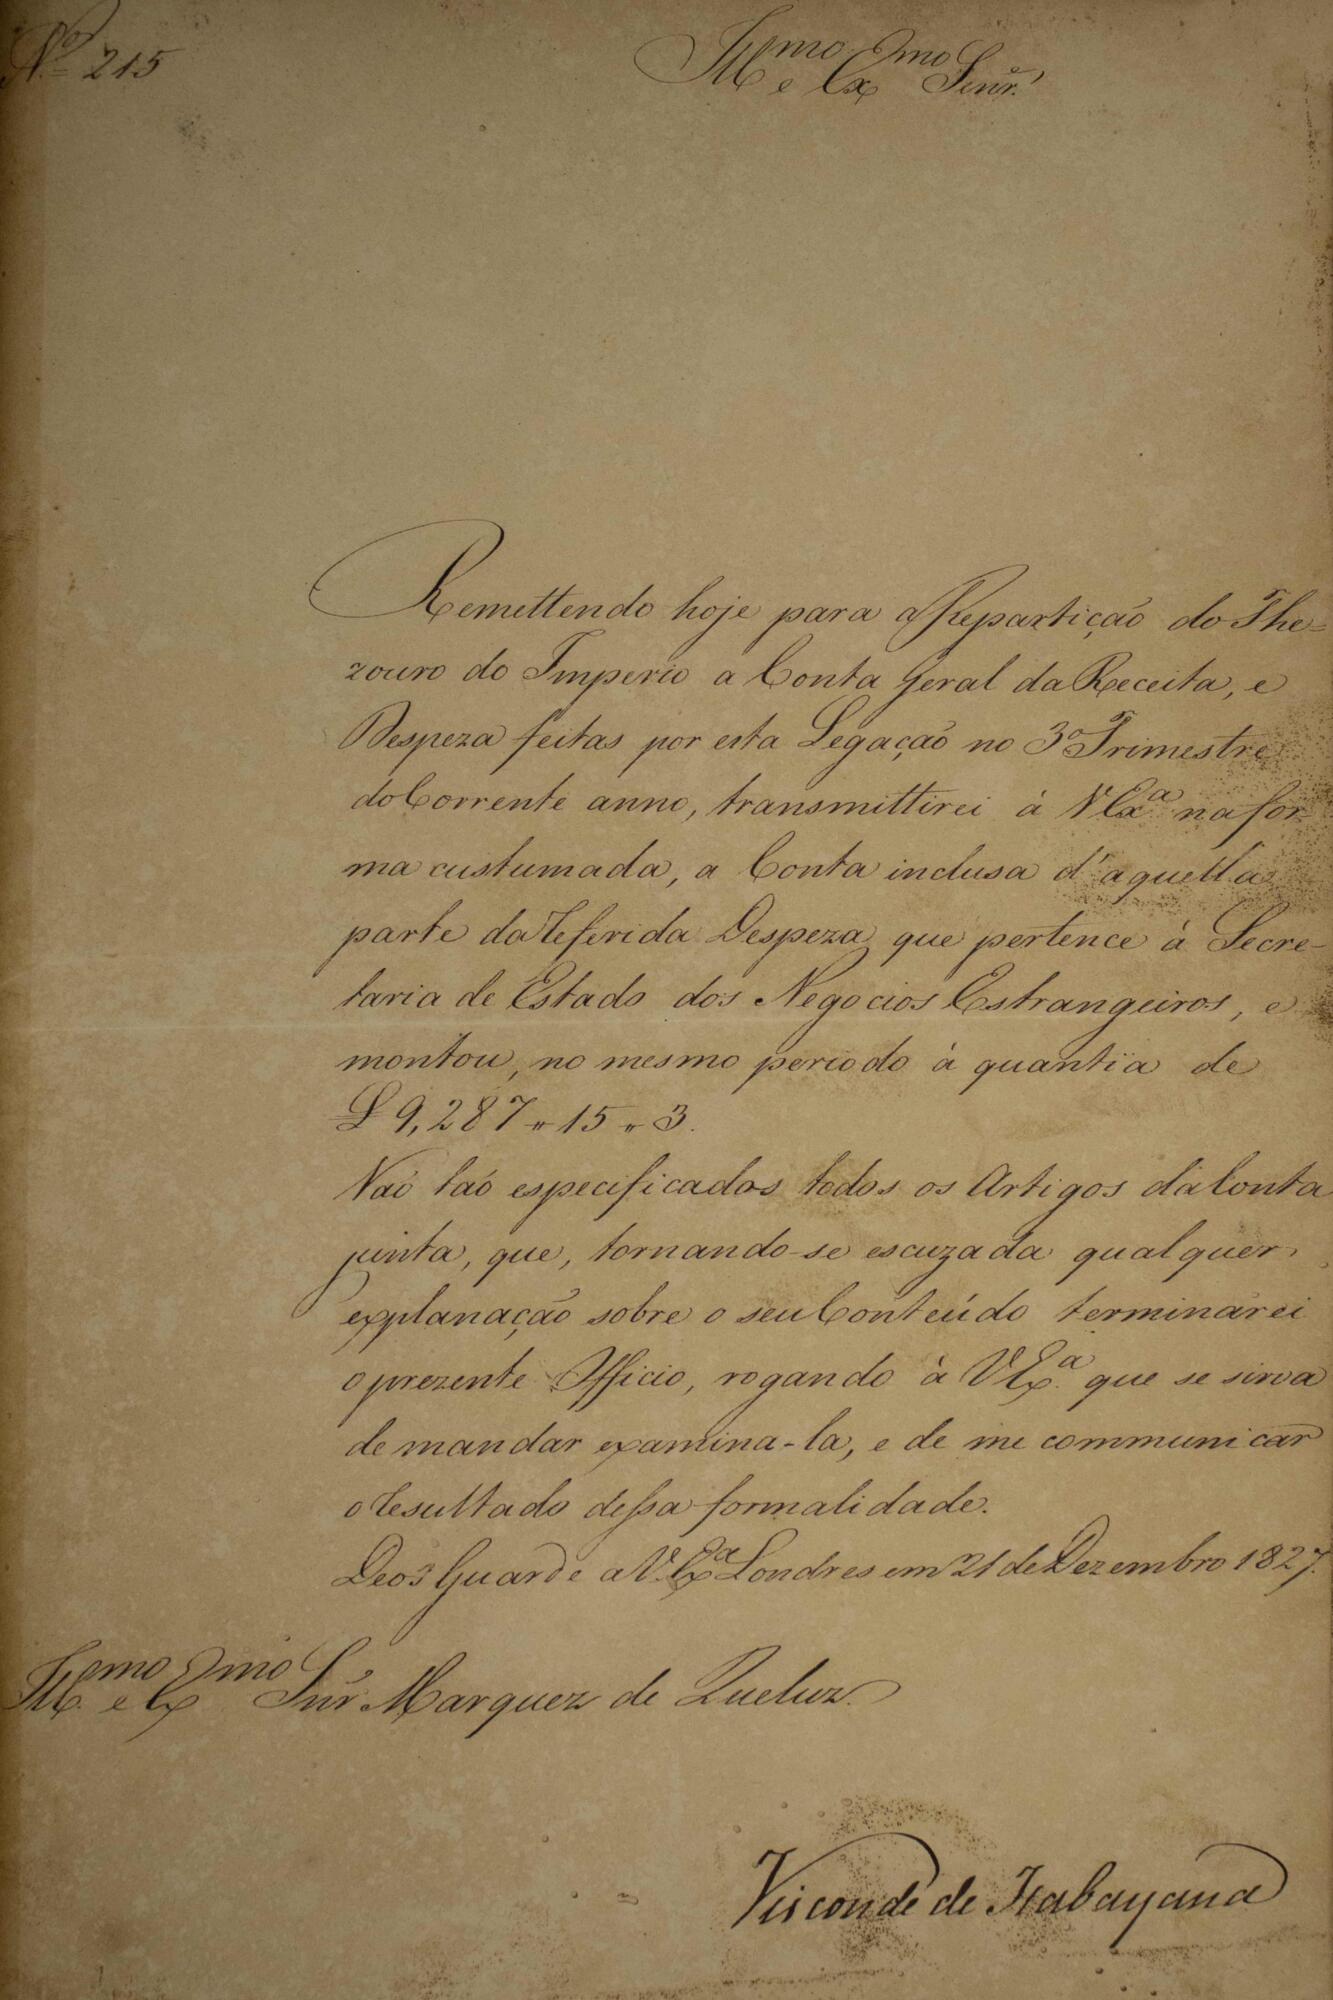 Nº 215
Illmo e Exmo Senr.
Remettendo hoje para a Repartição do The-
zouro do Imperio a Conta Geral da Receita, e
Despeza feitas por esta Legação no 3º Trimestre
do Corrente anno, transmittirei à V Exª na for-
ma custumada, a Conta inclusa d'aquella
parte da referida Despeza que pertence à Secre-
taria de Estado dos Negocios Estrangeiros, e
montou, no mesmo periodo à quantia de
£ 9,287 " 15 " 3.
Vaõ taõ especificados todos os Artigos da Conta
junta, que, tornando-se escuzada qualquer
explanação sobre o seu Conteúdo terminarei
o prezente Officio, rogando à V Exª que se sirva
de mandar examina-la, e de me communicar
o resultado dessa formalidade.
Deos Guarde a V. Exª Londres em 21 de Dezembro 1827.
Illmo e Exmo Snr Marquez de Queluz.
Visconde de Itabayana